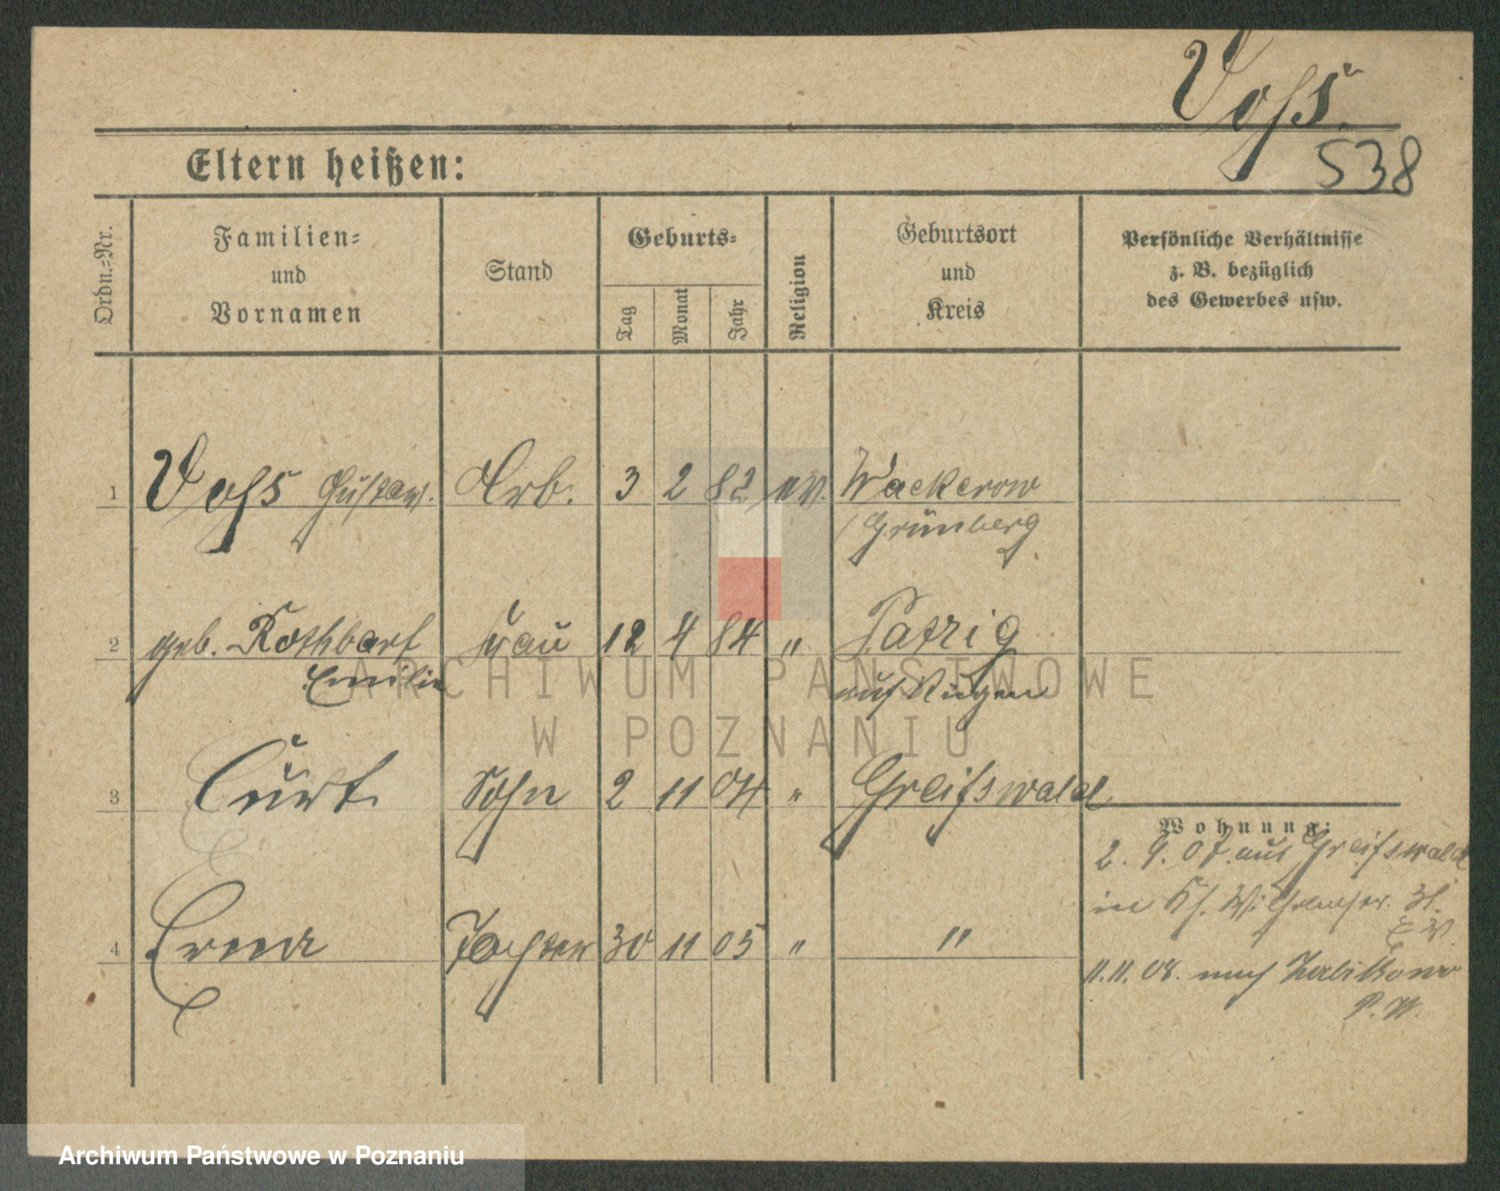 Voß.
538
Eltern heißen:
Ordn.-Nr.
Familien-
und
Vornamen
Stand
Geburts-
Tag
Monat
Jahr
Religion
Geburtsort
und
Kreis
Persönliche Verhältnisse
z. B. bezüglich
des Gewerbes usw.
1 Voß Gustav. Arb. 3 2 82 ev. Wackerow
Grünberg
2 geb. Rothbart Frau 12 4 84 " Patzig
Emilie auf Rügen
3 Curt Sohn 2 11 04 " Greifswald
Wohnung:
2. 9. 07 aus Greifswald
in
4 Erna Tochter 30 11 05 " "
11.11.08. nach Zabikowo
P. W.
ARCHIWUM PAŃSTWOWE
W POZNANIU
Archiwum Państwowe w Poznaniu